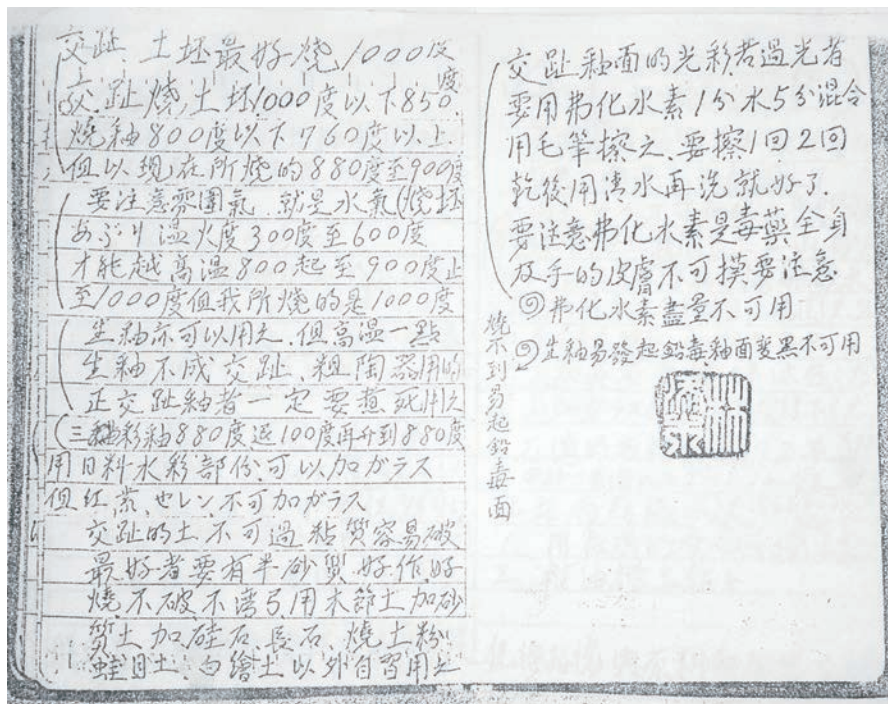 交趾、土坯最好燒1000度
交趾燒,土坯1000度以下850度
燒釉800度以下760度以上
但以現在所燒的880度至900度
要注意雰囲氣、就是水氣(燒坯
あぶり温火度300度至600度
才能越高温800起至900度止
至1000度但我所燒的是1000度
生釉亦可以用之、但高温一點
生釉不成交趾、粗陶器用的
正交趾釉者一定要想死用之
(三彩釉880度退100度再升到880度
用日料水彩部份、可以加ガラス
但紅、セレン、不可加ガラス
交趾的土不可過粘質容易破
最好者要有半砂質、好作、好
燒、不破、不湾弓、用木節土加砂
質土加硅石、長石、燒土粉
蛙目土、白繪土以外自習用之
交趾釉面的光彩若過光者
要用弗化水素1分水5分混合
用毛筆擦之、要擦1回2回
乾後用清水再洗就好了.
要注意弗化水素是毒藥全身
及手的皮膚不可摸要注意
弗化水素盡量不可用
生釉易發起鉛毒、釉面變黑不可用
燒不到易起鉛毒面
林